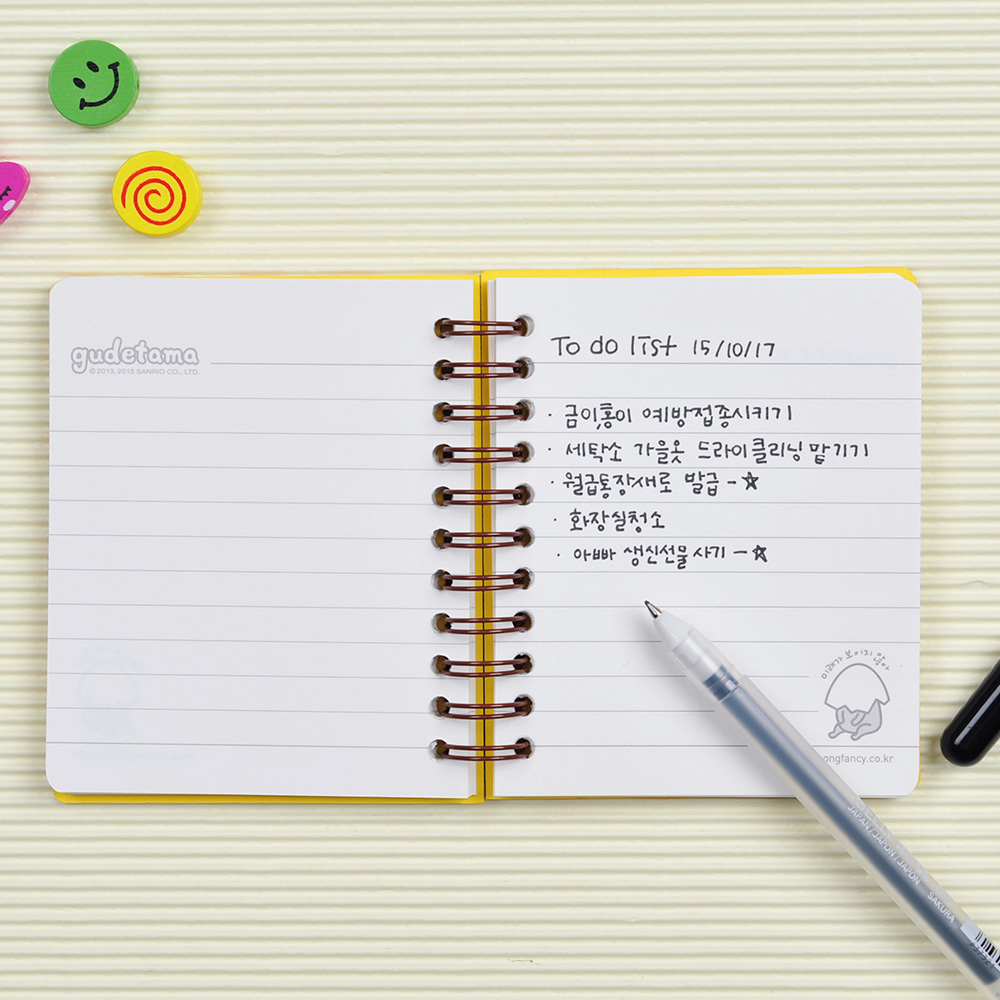 gudetama
© 2013, 2015 SANRIO CO., LTD.
To do list 15/10/17
· 금이홍이 예방접종시키기
· 세탁소 가을옷 드라이클리닝 맡기기
· 월급통장새로 발급 - ☆
· 화장실청소
· 아빠 생신선물 사기 - ☆
미래가 보이지 않아
ongfancy.co.kr
JAPAN / JAPON / JAPON
SAKURA